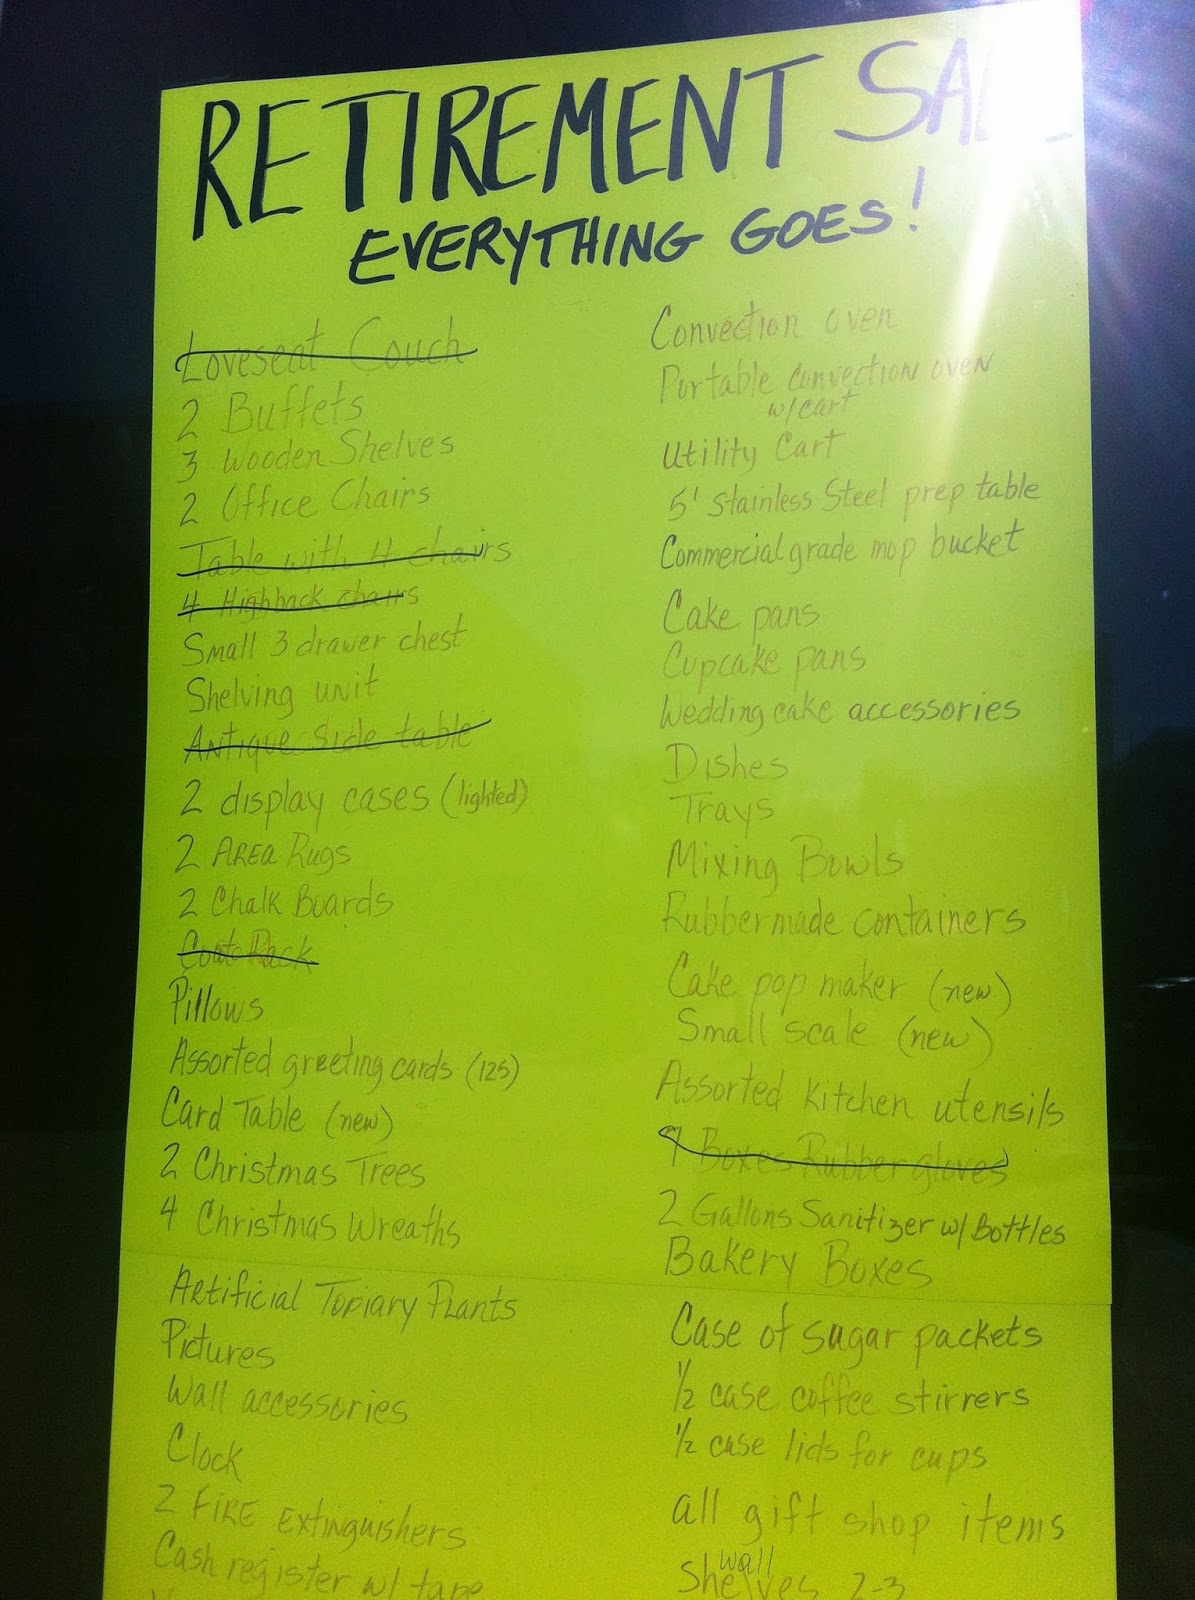 RETIREMENT SALE
EVERYTHING GOES!
Loveseat Couch
2 Buffets
3 Wooden Shelves
2 Office Chairs
Table with 4 chairs
4 Highback chairs
Small 3 drawer chest
Shelving unit
Antique Side table
2 display cases (lighted)
2 AREA Rugs
2 Chalk Boards
Coat Rack
Pillows
Assorted greeting cards (125)
Card Table (new)
2 Christmas Trees
4 Christmas Wreaths
Artificial Topiary Plants
Pictures
Wall accessories
Clock
2 FIRE Extinguishers
Cash register w/ tape
Convection oven
Portable convection oven
w/cart
Utility Cart
5' Stainless Steel prep table
Commercial grade mop bucket
Cake pans
Cupcake pans
Wedding cake accessories
Dishes
Trays
Mixing Bowls
Rubbermade containers
Cake pop maker (new)
Small scale (new)
Assorted kitchen utensils
Boxes Rubber gloves
2 Gallons Sanitizer w/ Bottles
Bakery Boxes
Case of sugar packets
1/2 case coffee stirrers
1/2 case lids for cups
all gift shop items
wall
Shelves 2-3